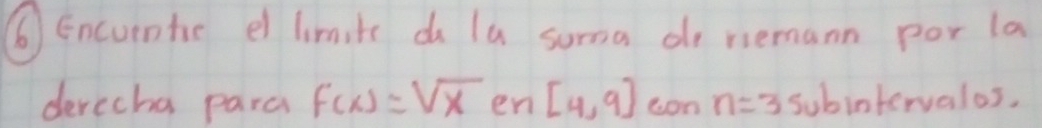 ⑥ Encuentre el limite de la suma de riemann por la
derecha para f(x) = √x en [4,9] con n=3 subintervalos.